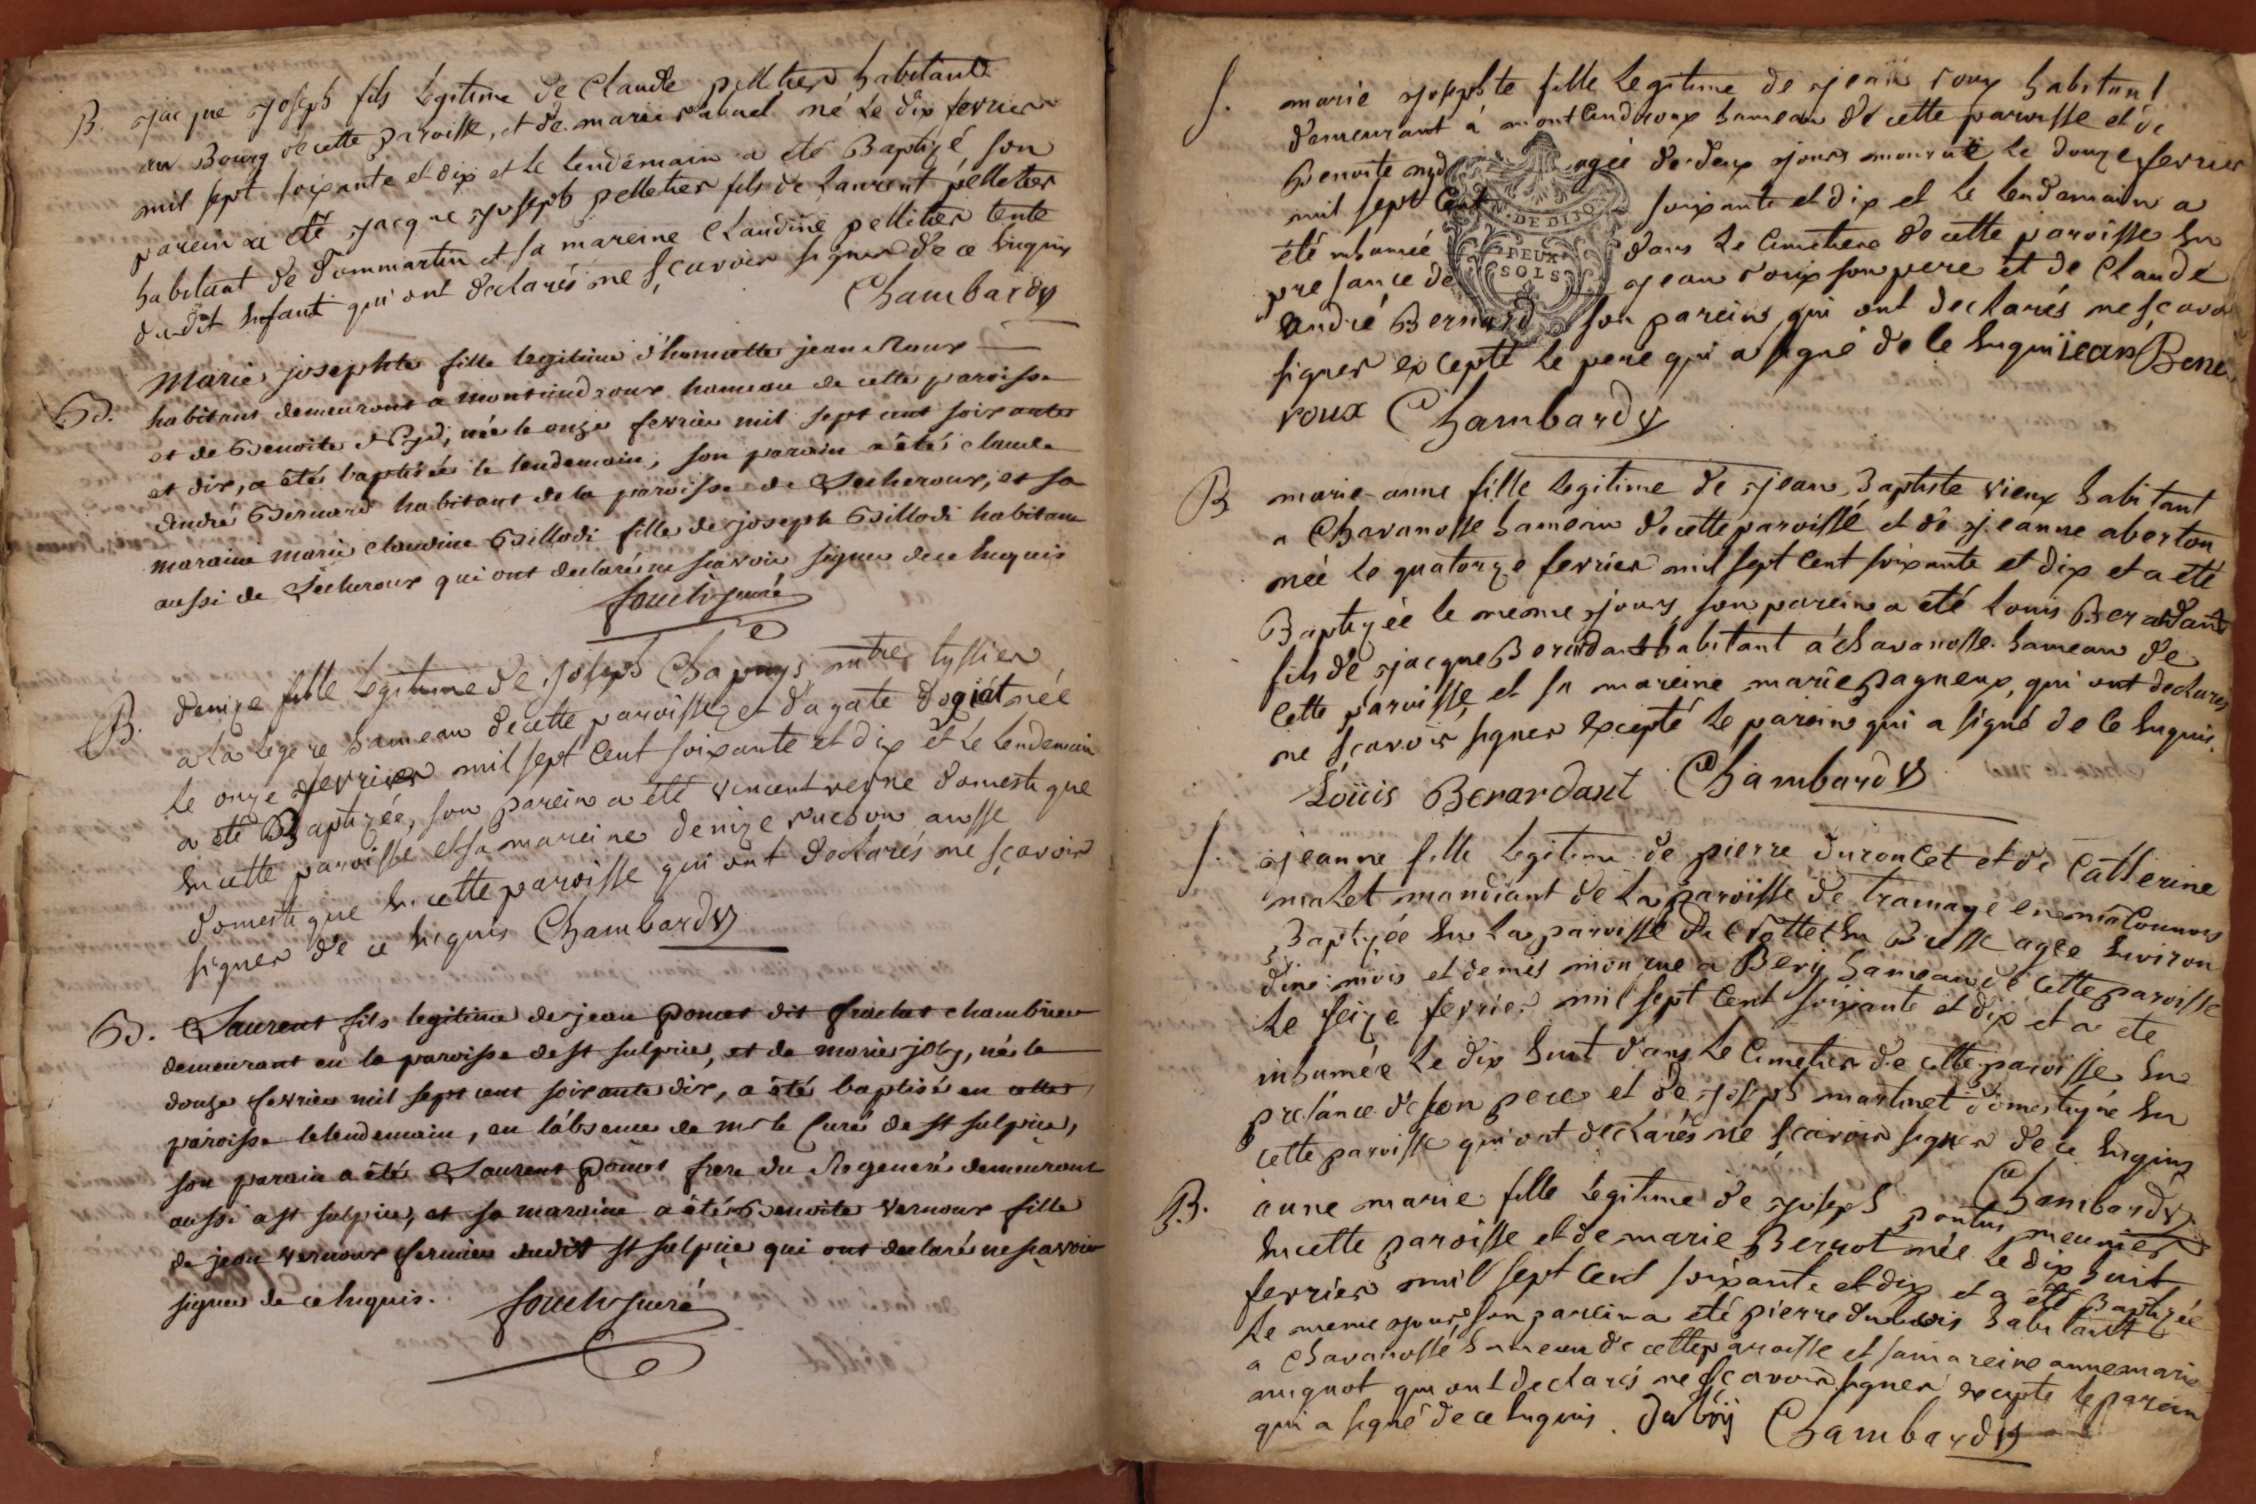 B. jacque joseph fils legitime de Claude pelletier habitant
au Bourg de cette paroisse, et de marie né le dix fevrier
mil sept soixante et dix et le lendemain a eté Baptizé son
parein a eté jacque joseph pelletier fils de Laurent pelletier
habitant de dommartin et sa mareine Claudine pelletier tente
dudit enfant qui ont declarés ne sçavoir signer de ce enquis
Chambardy
B. Marie josephte fille legitime d'honnette jean Roux
habitant demeurant a montcindroux hameau de cette paroisse
et de Benoite Nyd, née le onze fevrier mil sept cent soixante
et dix, a étés baptisée le lendemain, son parain a étés claude
andré Bernard habitant de la paroisse de Lecheroux, et sa
maraine marie claudine Billodi fille de joseph Billodi habitant
aussi de Lecheroux qui ont declaré ne scavoir signer de ce enquis
curé
B. denize fille legitime de joseph Chapuys mtre tyssier
a la legere hameau de cette paroisse, et d'agate dogiat née
le onze fevrier mil sept Cent soixante et dix et le lendemain
a eté Baptizée, son parein a eté vincent verne domestique
en cette paroisse et sa mareine denize rucbon ausse
domestique en cette paroisse qui ont declarés ne sçavoir
signer de ce enquis Chambardy
B. Laurent fils legitime de jean poncet dit frachet chambrier
demeurant en la paroisse de st sulpice, et de marie joly, né le
douze fevrier mil sept cent soixante dix, a été baptisé en cette
paroisse le lendemain, en l'absence de mr le Curé de st sulpice,
son parain a étés Laurent poncet frere du Regeneré demeurant
aussi a st sulpice, et sa maraine a étés Benoite vernoux fille
de jean vernoux fermier dudit st sulpice qui ont declaré ne scavoir
signer de ce enquis. curé
S. marie josephte fille legitime de jean roux habitant
demeurant à montcindroux hameau de cette paroisse et de
Benoite nyd agée de deux jours mourut le douze fevrier
mil sept Cent soixante et dix et le lendemain a
été inhumée dans le Cimetiere de cette paroisse en
presance de jean roux son pere et de Claude
andré Bernard son parein qui ont declarés ne sçavoir
signer excepté le pere qui a signé de ce enquis jean Bene
roux Chambardy
DE DIJON
DEUX
SOLS
B marie-anne fille legitime de jean Baptiste vieux habitant
a Chavanosse hameau de cette paroisse et de jeanne aberton
née le quatorze fevrier mil sept Cent soixante et dix et a eté
Baptizée le meme jours, son parein a été Louis Berardant
fils de jacque Berardant habitant a chavanosse hameau de
Cette paroisse, et sa mareine marie pagneux, qui ont declarés
ne sçavoir signer excepté le parein qui a signé de ce enquis.
Loüis Berardant Chambardy
S. jeanne fille legitime de pierre duroncet et de Catterine
malet mandiant de la paroisse de tramaye en mâconnois
Baptizée en la paroisse de Crottet en Bresse agée environ
d'un mois et demis mourut a Bevy hameau de Cette paroisse
Le seize fevrier mil sept Cent soixante et dix et a ete
inhumée le dix huit dans le Cimetier de cette paroisse en
presance de son pere et de joseph martinet domestique en
cette paroisse qui ont declarés ne sçavoir signer de ce enquis
Chambardy
B. anne marie fille legitime de joseph pontus meunier
en cette paroisse et de marie Berrot née le dix huit
fevrier mil sept Cent soixante et dix et a eté Baptizée
le meme jour, son parein a eté pierre dubois habitant
a Chavanosse hameau de cette paroisse et sa mareine anne marie
mignot qui ont declarés ne sçavoir signer excepté le parein
qui a signé de ce enquis. Chambardy